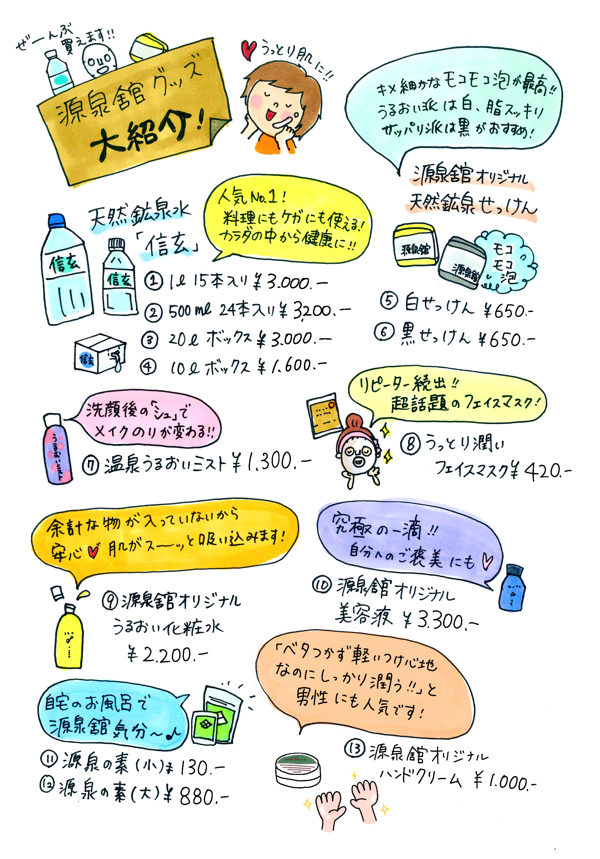 ぜーんぶ
買えます!!
源泉舘グッズ
大紹介!
♥うっとり肌に!!
キメ細かなモコモコ泡が最高!!
うるおい派は白、脂スッキリ
サッパリ派は黒がおすすめ!
源泉舘オリジナル
天然鉱泉せっけん
源泉舘
源泉舘
モコ
モコ
泡
⑤ 白せっけん ¥650.-
⑥ 黒せっけん ¥650.-
天然鉱泉水
「信玄」
人気No.1!
料理にもケガにも使える!
カラダの中から健康に!!
信玄
信玄
信玄
① 1ℓ 15本入り ¥3.000.-
② 500mℓ 24本入り ¥3,200.-
③ 20ℓ ボックス ¥3.000.-
④ 10ℓ ボックス ¥1.600.-
洗顔後の「シュ」で
メイクのりが変わる!!
うるおいミスト
⑦ 温泉うるおいミスト ¥1.300.-
リピーター続出!!
超話題のフェイスマスク!
⑧ うっとり潤い
フェイスマスク ¥420.-
余計な物が入っていないから
安心♥肌がスーッと吸い込みます!
⑨ 源泉舘オリジナル
うるおい化粧水
¥2.200.-
究極の一滴!!
自分へのご褒美にも♡
⑩ 源泉舘オリジナル
美容液 ¥3.300.-
自宅のお風呂で
源泉舘気分〜♪
⑪ 源泉の素(小)¥130.-
⑫ 源泉の素(大)¥880.-
「ベタつかず軽いつけ心地
なのにしっかり潤う!!」と
男性にも人気です!
⑬ 源泉舘オリジナル
ハンドクリーム ¥1.000.-